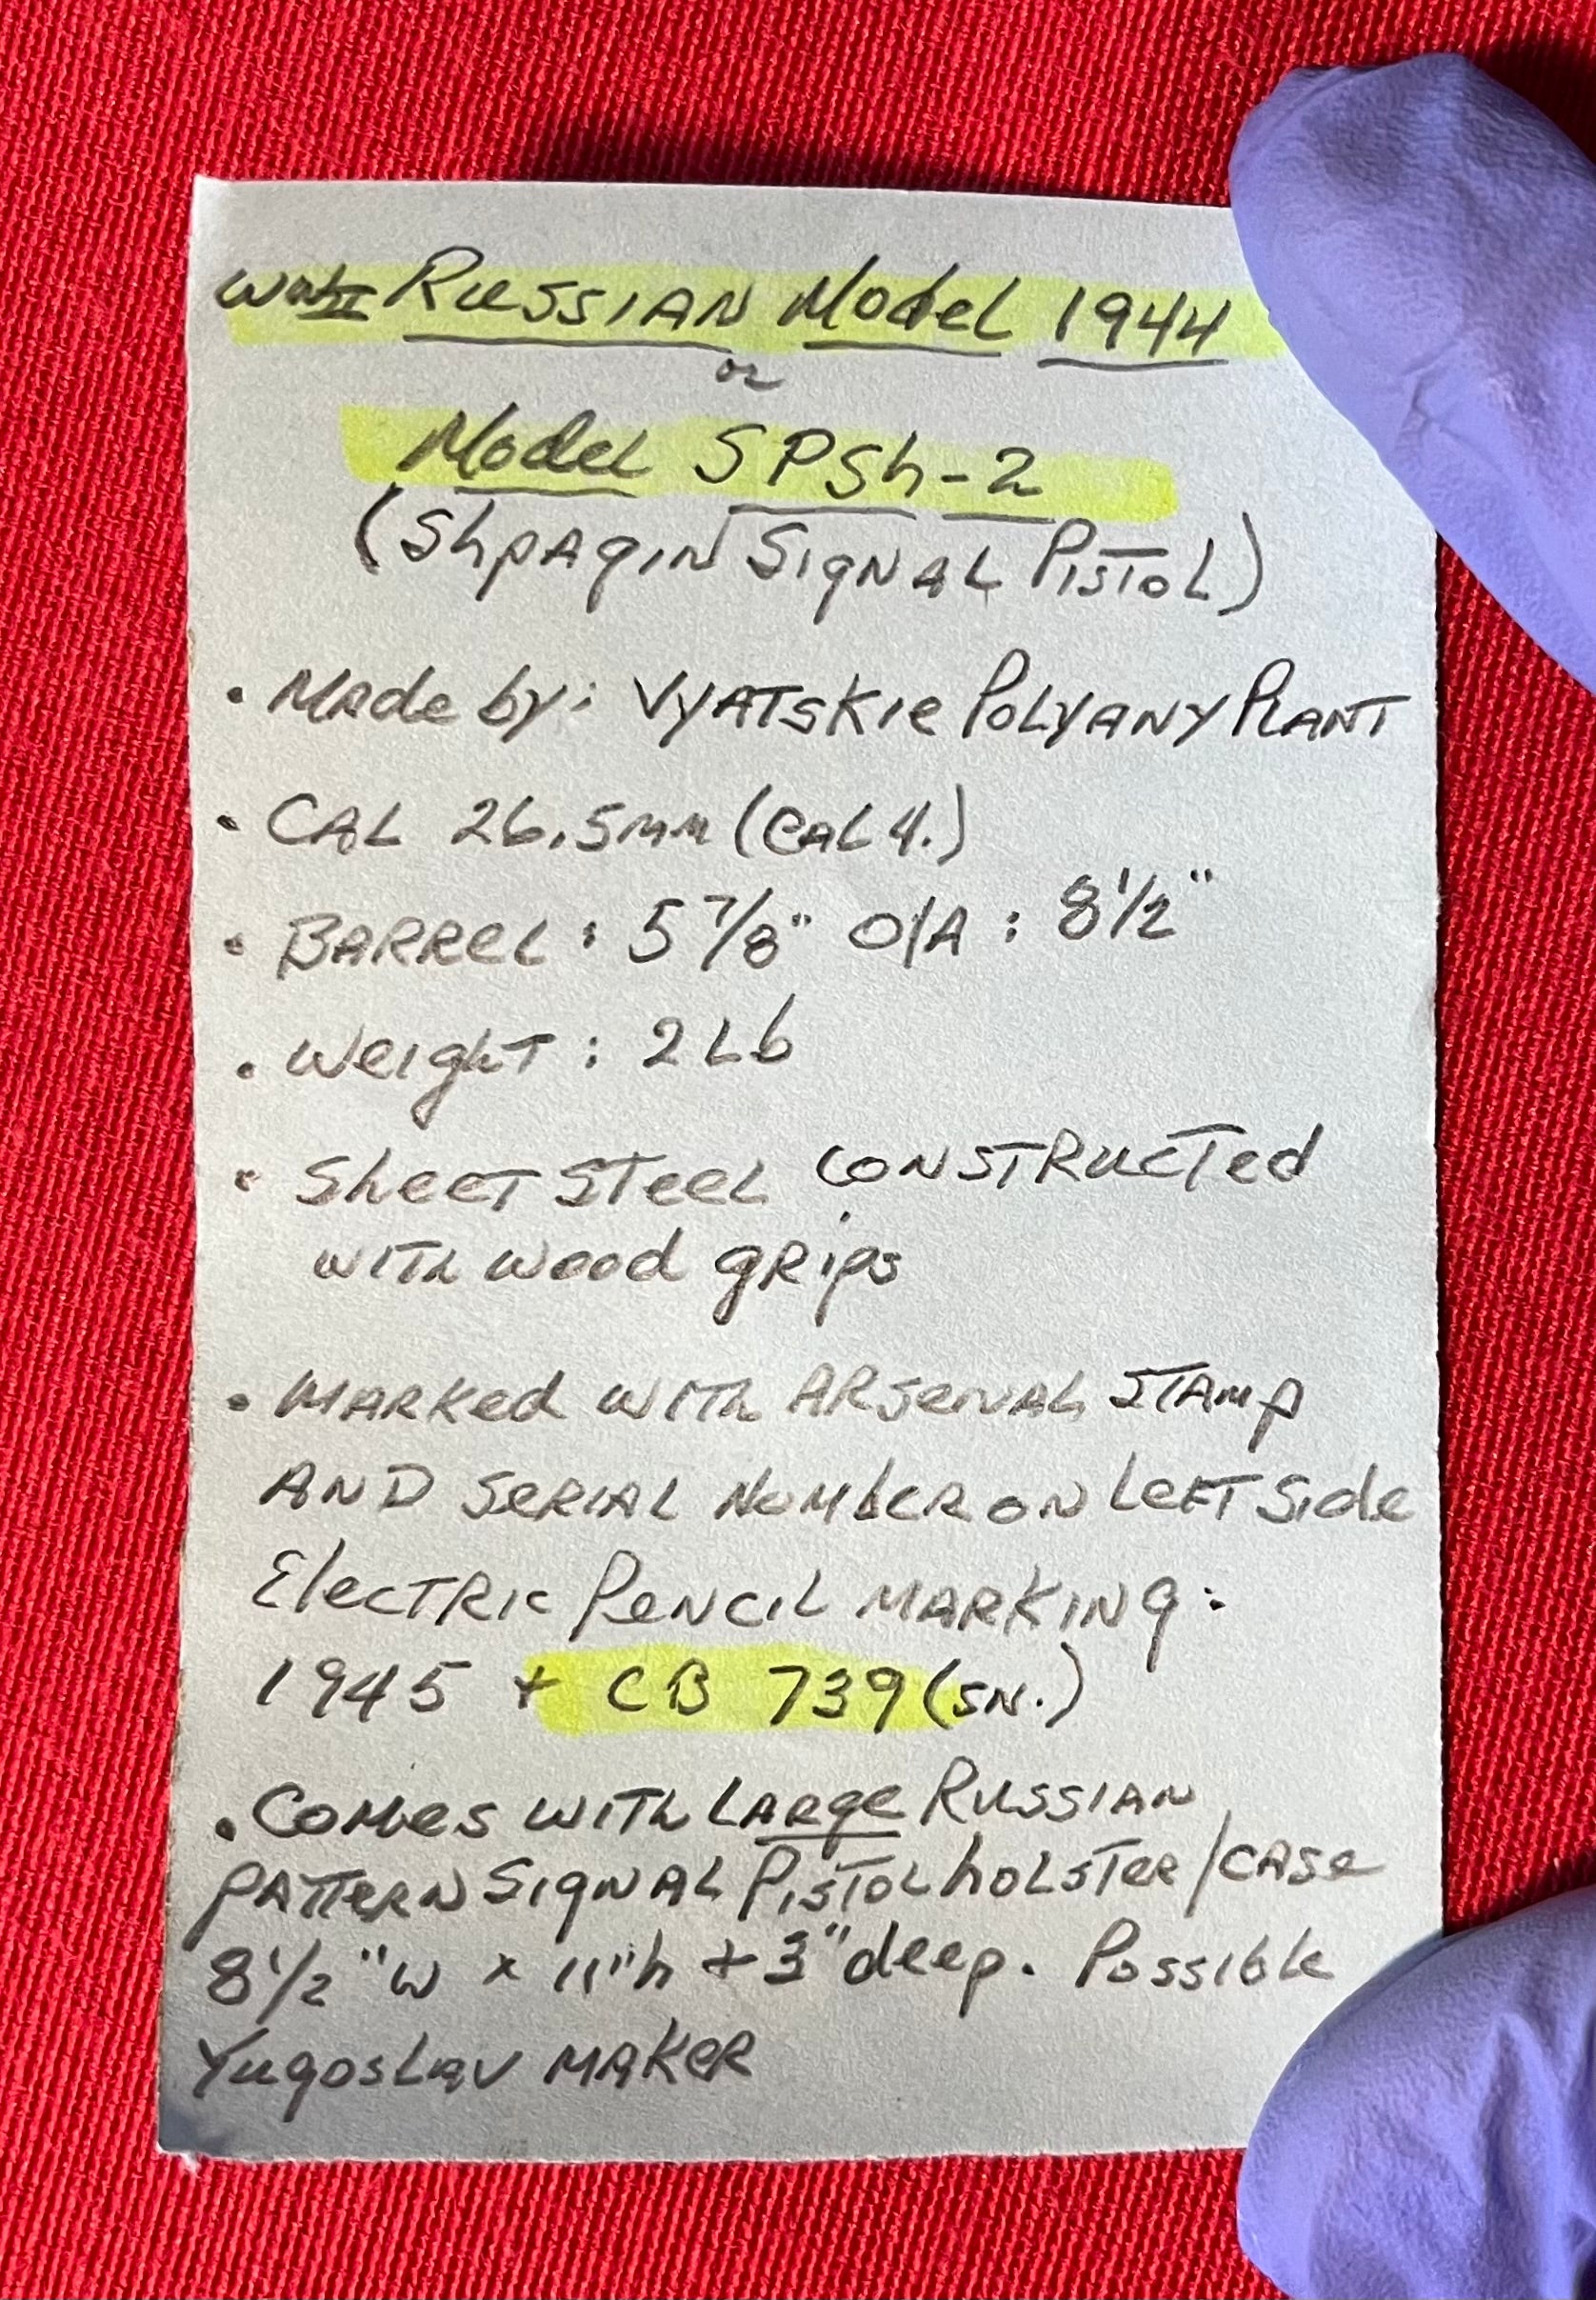 WWII Russian Model 1944
or
Model SPSh-2
(Shpagin Signal Pistol)
• Made by: Vyatskie Polyany Plant
• CAL 26.5mm (Cal 4.)
• Barrel: 5 7/8" O/A: 8 1/2"
• Weight: 2 Lb
• Sheet Steel constructed
with wood grips
• Marked with Arsenal stamp
AND Serial Number on Left Side
Electric Pencil Marking:
1945 + CB 739 (SN.)
• Comes with Large Russian
Pattern Signal Pistol holster/case
8 1/2" w x 11" h + 3" deep. Possible
Yugoslav Maker